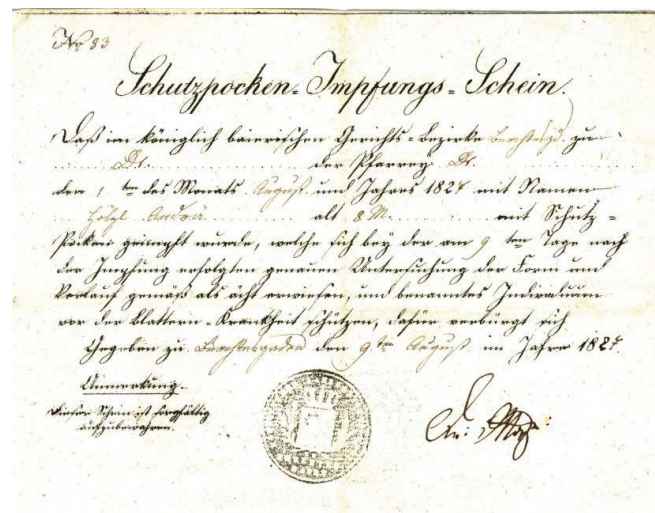 No 83
Schutzpocken-Impfungs-Schein.
Daß im königlich baierischen Gerichts-Bezirke Berchtesg. zu
Dt. der Pfarrey Dt.
den 1 ten des Monats August und Jahres 1827 mit Namen
Hölzl Andrä alt 8 M. mit Schutz-
Pocken geimpft wurde, welche sich bey der am 9 ten Tage nach
der Impfung erfolgten genauen Untersuchung der Form und
Verlauf gemäß als ächt erwiesen, und benanntes Individuum
vor der Blattern-Krankheit schützen, dafür verbürgt sich
Gegeben zu Berchtesgaden den 9. ten August im Jahre 1827.
Anmerkung.
Dieser Schein ist sorgfältig
aufzubewahren.